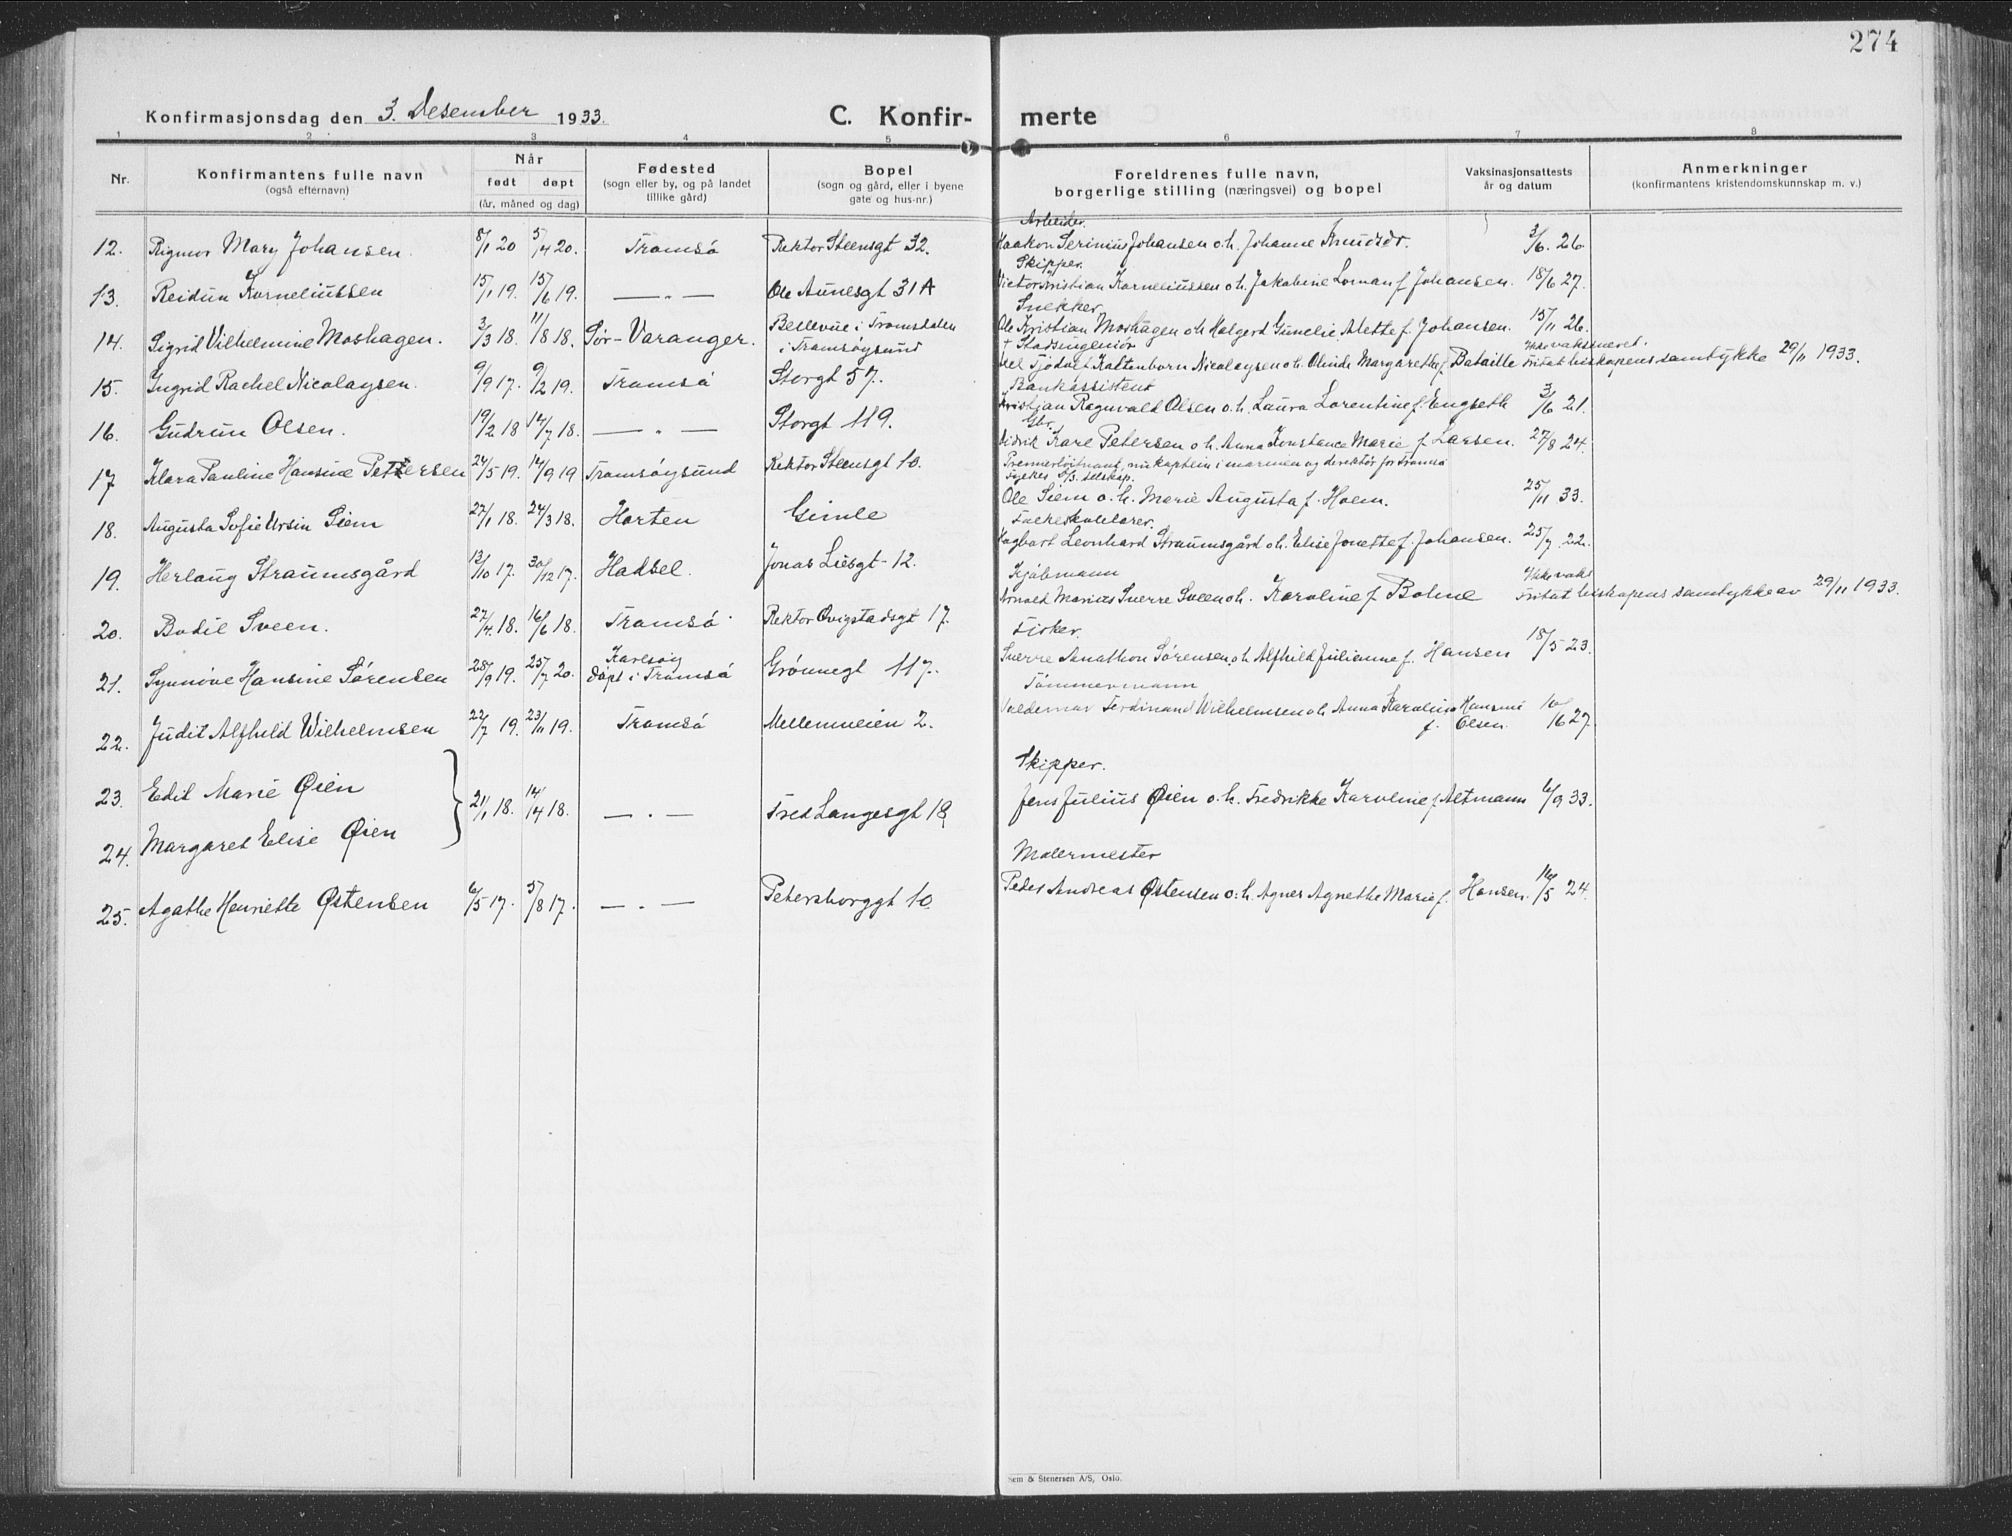 274
Konfirmasjonsdag den 3. Desember 1933.
C. Konfir- merte
1 2 3 4 5 6 7 8
Nr.
Konfirmantens fulle navn
(også efternavn)
Når
født døpt
(år, måned og dag)
Fødested
(sogn eller by, og på landet
tillike gård)
Bopel
(sogn og gård, eller i byene
gate og hus-nr.)
Foreldrenes fulle navn,
borgerlige stilling (næringsvei) og bopel
Vaksinasjonsattests
år og datum
Anmerkninger
(konfirmantens kristendomskunnskap m. v.)
Arbeider.
12. Rigmor Mary Johansen. 8/1 20 5/4 20. Tromsö Rektor Steensgt 32. Haakon Serinius Johansen o.h. Johanne Knudsdr. 3/6. 26
Skipper.
13. Reidun Korneliussen 15/1 19. 15/6 19. — " — Ole Aunesgt 31A Victor Kristian Korneliussen o.h. Jakobine Lornan f. Johansen. 18/6 27.
Snekker.
14. Sigrid Vilhelmine Moshagen. 3/3 18. 11/8 18. Sør-Varanger. Bellevue i Tromsdalen
i Tromsøysund
Ole Kristian Moshagen o.h. Halgerd Gunelie Alette f. Johansen. 15/11 26.
† Stadsingeniør
Ikke vaksineret.
15. Ingrid Rachel Nicolaysen. 9/9 17. 9/2 19. Tromsö Storgt 57. Kaltenborn Nicolaysen o.h. Olivide Margarethe f. Bataille Fritat biskopens samtykke 29/11 1933.
Bankassistent
16. Gudrun Olsen. 19/2 18 14/7 18. — " — Storgt 119. Kristjan Ragnvald Olsen o.h. Laura Lorentine f. Engseth 3/6 21.
Gbr.
17 Klara Pauline Hansine Pettersen 24/5 19. 14/9 19 Tromsøysund Rektor Steensgt 10. Didrik Karl Petersen o.h. Anna Konstance Marie f. Larsen. 27/8 24.
Premierløitnant, nu kaptein i marinen og direktør for Troms
Fylkes D/S. selskap.
18. Augusta Sofie Ursin Siem 27/1 18. 24/3 18. Horten Gimle Ole Siem o.h. Marie Augusta f. Holm. 25/11 33.
Folkeskolelærer.
19. Herlaug Straumsgård 13/10 17. 30/12 17. Hadsel. Jonas Liesgt 12. Hagbart Leonhard Straumsgård o.h. Elise Jonette f. Johansen. 25/7 22.
Kjøbmann
Ikke vaks
20. Bodil Sveen. 27/4 18. 16/6 18. Tromsö Rektor Qvigstadsgt 17. Arnold Marius Sverre Sveen o.h. Karoline f. Bohne Fritat biskopens samtykke av 29/11 1933.
Fisker.
21. Synnöve Hansine Sørensen 28/9 19. 25/7 20. Karlsøy
døpt i Tromsö
Grönnegt 117. Sverre Jonathon Sørensen o.h. Alfhild Julianne f. Hansen 18/5 23.
Tømmermann
22. Judit Alfhild Wilhelmsen 22/7 19. 23/11 19. Tromsö Mellemveien 2. Valdemar Ferdinand Wilhelmsen o.h. Anna Karoline Hansine
f. Olsen. 10/6 27.
Skipper.
23. Edit Marie Øien
21/1 18. 14/4 18. — " — Fred Langesgt 18 Jens Julius Øien o.h. Fredrikke Karoline f. Altmann 6/9 33.
24. Margaret Elise Øien
Malermester
25. Agathe Henriette Østensen 6/5 17. 5/8 17. — " — Petersborggt 10. Peder Andreas Østensen o.h. Agnes Agnethe Marie f. Hansen. 16/5 24.
Sem & Stenersen A/S, Oslo.